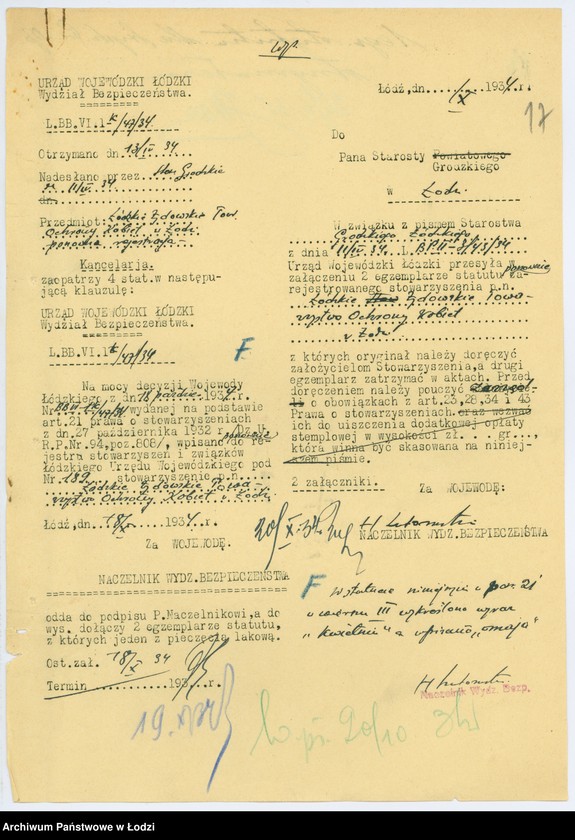 URZĄD WOJEWÓDZKI ŁÓDZKI
Wydział Bezpieczeństwa.
L.BB.VI.1 k/47/34
Otrzymano dn 13/IV 34
Nadesłano przez Star. Grodzkie
11/IV 34
dn.
Przedmiot: Łódzkie Żydowskie Tow.
Ochrony Kobiet w Łodzi
ponowna rejestracja
Kancelarja.
zaopatrzy 4 stat.w następu-
jącą klauzulę:
URZĄD WOJEWÓDZKI ŁÓDZKI
Wydział Bezpieczeństwa.
L.BB.VI.1 k/47/34
F
Na mocy decyzji Wojewody
Łódzkiego z dn 18 paździer. 1934 r.
Nr. wydanej na podstawie
art.21 prawa o stowarzyszeniach
z dn.27 października 1932 r./Dz.U.
R.P.Nr.94,poz.808/, wpisano ponownie do re-
jestru stowarzyszeń i związków
Łódzkiego Urzędu Wojewódzkiego pod
Nr. 189 stowarzyszenie p.n.
Łódzkie Żydowskie Towa-
rzystwo Ochrony Kobiet w Łodzi
Łódź,dn. 18/X 1934 r.
Za WOJEWODĘ.
NACZELNIK WYDZ.BEZPIECZEŃSTWA
odda do podpisu P.Naczelnikowi,a do
wys. dołączy 2 egzemplarze statutu,
z których jeden z pieczęcią lakową.
Ost.zał. 18/X 34
Termin 193 r.
Łódź,dn. /X 1934.r.
17
Do
Pana Starosty Powiatowego
Grodzkiego
w Łodzi.
W związku z pismem Starostwa
Grodzkiego Łódzkiego
z dnia 11/IV 34 L. BP.II-8/43/34
Urząd Wojewódzki Łódzki przesyła w
załączeniu 2 egzemplarze statutu ponownie za-
rejestrowanego stowarzyszenia p.n.
Łódzkie Żydowskie Towa-
rzystwo Ochrony Kobiet
w Łodzi
z których oryginał należy doręczyć
założycielom Stowarzyszenia,a drugi
egzemplarz zatrzymać w aktach. Przed
doręczeniem należy pouczyć
o obowiązkach z art.23,28,34 i 43
Prawa o stowarzyszeniach.oraz wezwać
ich do uiszczenia dodatkowej opłaty
stemplowej w wysokości zł. gr.,
która winna być skasowana na niniej-
szem piśmie.
2 załączniki.
Za WOJEWODĘ:
20/X 34
NACZELNIK WYDZ.BEZPIECZEŃSTWA
F
W statucie niniejszym w par. 21
w wierszu III wykreślono wyraz
"kwietniu" a wpisano "maja"
Naczelnik Wydz. Bezp.
19.X
20/10
Archiwum Państwowe w Łodzi